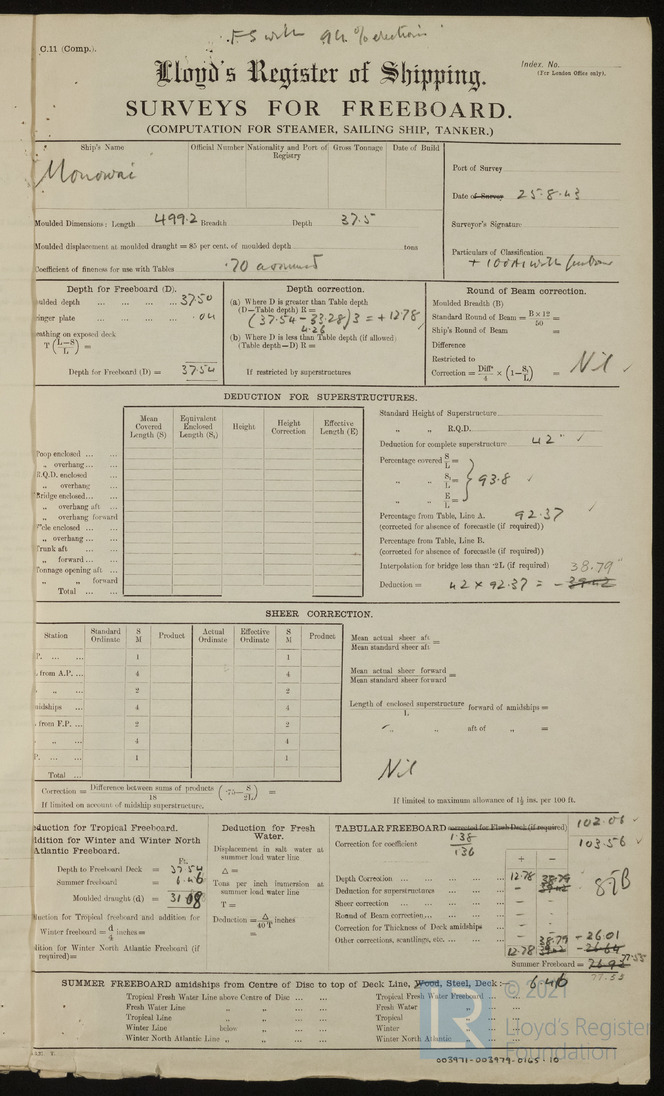 FS with 94% erections
C.11 (Comp.).
Index. No.
(For London Office only).
Lloyd's Register of Shipping.
SURVEYS FOR FREEBOARD.
(COMPUTATION FOR STEAMER, SAILING SHIP, TANKER.)
Ship's Name Official Number Nationality and Port of Registry Gross Tonnage Date of Build
Monowai
Port of Survey
Date of Survey 25.8.43
Surveyor's Signature
Particulars of Classification
+ 100A1 with freeboard
Moulded Dimensions: Length 499.2 Breadth Depth 37.5
Moulded displacement at moulded draught = 85 per cent. of moulded depth tons
Coefficient of fineness for use with Tables .70 assumed
Depth for Freeboard (D).
oulded depth ... ... ... ... 37.50
ringer plate ... ... ... ... .04
eathing on exposed deck
T (L-S/L) =
Depth for Freeboard (D) = 37.54
Depth correction.
(a) Where D is greater than Table depth
(D-Table depth) R =
(37.54 - 33.28) 3 = + 12.78
4.26
(b) Where D is less than Table depth (if allowed)
(Table depth-D) R =
If restricted by superstructures
Round of Beam correction.
Moulded Breadth (B)
Standard Round of Beam = B x 12/50 =
Ship's Round of Beam =
Difference
Restricted to
Correction = Diffce/4 x (1-S₁/L) = Nil
DEDUCTION FOR SUPERSTRUCTURES.
Mean Covered Length (S) Equivalent Enclosed Length (S₁) Height Height Correction Effective Length (E)
Poop enclosed ... ...
„ overhang ... ...
R.Q.D. enclosed
„ overhang
Bridge enclosed ... ...
„ overhang aft
„ overhang forward
F'cle enclosed ... ...
„ overhang ... ...
Trunk aft ...
„ forward ... ...
Tonnage opening aft ...
„ „ forward
Total ... ...
Standard Height of Superstructure
„ „ R.Q.D.
Deduction for complete superstructure 42"
Percentage covered S/L =
„ „ S₁/L = } 93.8
„ „ E/L =
Percentage from Table, Line A. 92.37
(corrected for absence of forecastle (if required))
Percentage from Table, Line B.
(corrected for absence of forecastle (if required))
Interpolation for bridge less than ·2L (if required) 38.79"
Deduction = 42 x 92.37 = - 39.42
SHEER CORRECTION.
Station Standard Ordinate S M Product Actual Ordinate Effective Ordinate S M Product
P. ... ... 1 1
from A.P. ... 4 4
„ „ ... 2 2
midships ... 4 4
from F.P. ... 2 2
„ ... 4 4
P. ... ... 1 1
Total ...
Mean actual sheer aft / Mean standard sheer aft =
Mean actual sheer forward / Mean standard sheer forward =
Length of enclosed superstructure / L forward of amidships =
„ „ aft of „ =
Nil
Correction = Difference between sums of products / 18 (·75-S/2L) =
If limited on account of midship superstructure.
If limited to maximum allowance of 1½ ins. per 100 ft.
eduction for Tropical Freeboard.
ddition for Winter and Winter North Atlantic Freeboard.
Ft.
Depth to Freeboard Deck = 37.54
Summer freeboard = 6.46
Moulded draught (d) = 31.08
duction for Tropical freeboard and addition for
Winter freeboard = d/4 inches =
dition for Winter North Atlantic Freeboard (if required) =
Deduction for Fresh Water.
Displacement in salt water at summer load water line
Δ =
Tons per inch immersion at summer load water line
T =
Deduction = Δ/40T inches
=
TABULAR FREEBOARD corrected for Flush Deck (if required) 102.06
Correction for coefficient 1.38/1.36 103.56
+ -
Depth Correction ... ... ... ... 12.78 38.79
Deduction for superstructures ... ... - 39.42
Sheer correction ... ... ... ... -
Round of Beam correction ... ... -
Correction for Thickness of Deck amidships -
Other corrections, scantlings, etc. ... ... - 38.79 - 26.01
12.78 39.42 - 26.64
Summer Freeboard = 76.92 77.55
77.55
SUMMER FREEBOARD amidships from Centre of Disc to top of Deck Line, Wood, Steel, Deck:- 6.46
Tropical Fresh Water Line above Centre of Disc ... ... Tropical Fresh Water Freeboard ...
Fresh Water Line „ „ ... ... Fresh Water „ ...
Tropical Line „ „ ... ... Tropical „ ...
Winter Line below „ ... ... Winter „ ...
Winter North Atlantic Line „ „ ... ... Winter North Atlantic „ ...
© 2021
Lloyd's Register
Foundation
LR
003971-003979-0165-10